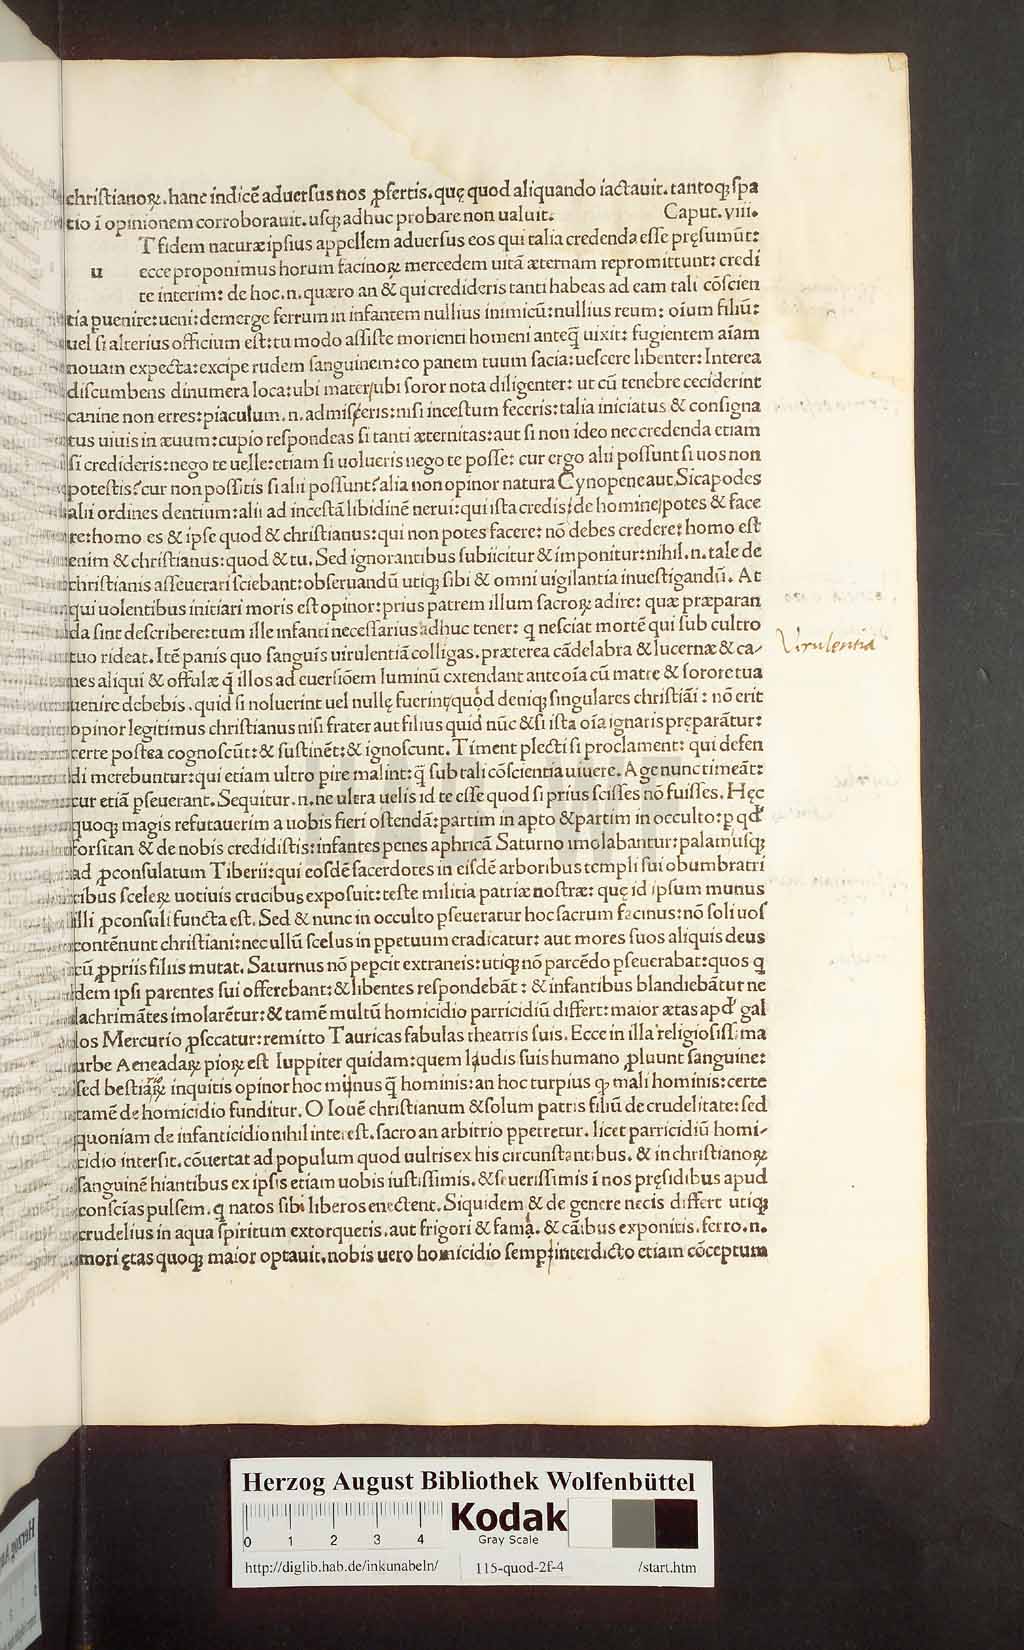 chriſtianoꝝ. hanc indicē aduerſus nos ꝓfertis. quę quod aliquando iactauit. tantoqꝫ ſpa
tio ī opinionem corroborauit. uſqꝫ adhuc probare non ualuit. Caput. viii.
T fidem naturæ ipſius appellem aduerſus eos qui talia credenda eſſe pręſumūt:
u ecce proponimus horum facinoꝝ mercedem uitā æternam repromittunt: credi
te interim: de hoc .n. quæro an & qui credideris tanti habeas ad eam tali cōſcien
tia puenire: ueni: demerge ferrum in infantem nullius inimicū: nullius reum: oīum filiū:
uel ſi alterius officium eſt: tu modo aſſiſte morienti homeni anteq̄ uixit: fugientem aīam
nouam expecta: excipe rudem ſanguinem: eo panem tuum ſacia: ueſcere libenter: Interea
diſcumbens dinumera loca: ubi mater/ubi ſoror nota diligenter: ut cū tenebre ceciderint
canine non erres: piaculum .n. admiſeris: niſi inceſtum feceris: talia iniciatus & conſigna
tus uiuis in æuum: cupio reſpondeas ſi tanti æternitas: aut ſi non ideo nec credenda etiam
ſi credideris: nego te uelle: etiam ſi uolueris nego te poſſe: cur ergo alii poſſunt ſi uos non
poteſtis? cur non poſſitis ſi alii poſſunt? alia non opinor natura Cynopene aut Sicapodes
alii ordines dentium: alii ad inceſtā libidinē nerui: qui iſta credis/ de homine/ potes & face
re: homo es & ipſe quod & chriſtianus: qui non potes facere: nō debes credere: homo eſt
enim & chriſtianus: quod & tu. Sed ignorantibus ſubiicitur & imponitur: nihil .n. tale de
chriſtianis aſſeuerari ſciebant: obſeruandū utiqꝫ ſibi & omni uigilantia inueſtigandū. At
qui uolentibus initiari moris eſt opinor: prius patrem illum ſacroꝝ adire: quæ præparan
da ſint deſcribere: tum ille infanti neceſſarius adhuc tener: q neſciat mortē qui ſub cultro
tuo rideat. Itē panis quo ſanguis uirulentiā colligas. præterea cādelabra & lucernæ & ca-
nes aliqui & offulæ q̄ illos ad euerſiōem luminū extendant ante oīa cū matre & ſorore tua
uenire debebis. quid ſi noluerint uel nullę fuerint/ quod deniqꝫ ſingulares chriſtiāi: nō erit
opinor legitimus chriſtianus niſi frater aut filius quid nūc & ſi iſta oīa ignaris pręparātur:
certe poſtea cognoſcūt: & ſuſtinēt: & ignoſcunt. Timent plecti ſi proclament: qui defen
di merebuntur: qui etiam ultro pire malint: q̄ ſub tali cōſcientia uiuere. Age nunc timeāt:
cur etiā pſeuerant. Sequitur .n. ne ultra uelis id te eſſe quod ſi prius ſciſſes nō fuiſſes. Hęc
quoqꝫ magis refutauerim a uobis fieri oſtendā: partim in apto & partim in occulto: p qđ
forſitan & de nobis credidiſtis: infantes penes aphricā Saturno imolabantur: palam uſqꝫ
ad ꝓconſulatum Tiberii: qui eoſdē ſacerdotes in eiſdē arboribus templi ſui obumbratri
cibus ſceleꝝ uotiuis crucibus expoſuit: teſte militia patriæ noſtræ: quę id ipſum munus
illi ꝓconſuli functa eſt. Sed & nunc in occulto pſeueratur hoc ſacrum facinus: nō ſoli uoſ
contēnunt chriſtiani: nec ullū ſcelus in ppetuum eradicatur: aut mores ſuos aliquis deus
cū ꝓpriis filiis mutat. Saturnus nō pepcit extraneis: utiqꝫ nō parcēdo pſeuerabat: quos q
dem ipſi parentes ſui offerebant: & libentes reſpondebāt: & infantibus blandiebātur ne
lachrimātes imolarētur: & tamē multū homicidio parricidiū differt: maior ætas apđ gal
los Mercurio ꝓſecatur: remitto Tauricas fabulas theatris ſuis. Ecce in illa religioſiſſima
urbe Aeneadaꝝ pioꝝ eſt Iuppiter quidam: quem ludis ſuis humano ꝓluunt ſanguine:
ſed beſtiaꝝ inquitis opinor hoc minus q̄ hominis: an hoc turpius qꝫ mali hominis: certe
tamē de homicidio funditur. O Iouē chriſtianum & ſolum patris filiū de crudelitate: ſed
quoniam de infanticidio nihil intereſt. ſacro an arbitrio ppetretur. licet parricidiū homi-
cidio interſit. cōuertat ad populum quod uultis ex his circunſtantibus. & in chriſtianoꝝ
ſanguinē hiantibus ex ipſis etiam uobis iuſtiſſimis. & ſeueriſſimis ī nos pręſidibus apud
conſcīas pulſem. q natos ſibi liberos enectent. Siquidem & de genere necis differt utiqꝫ
crudelius in aqua ſpiritum extorquetis. aut frigori & famā. & cāibus exponitis. ferro .n.
mori ętas quoqꝫ maior optauit. nobis uero homicidio ſemp/ interdicto etiam cōceptum
Virulentia
HAB-WF
Herzog August Bibliothek Wolfenbüttel
0 1 2 3 4
Kodak
Gray Scale
http://diglib.hab.de/inkunabeln/ 115-quod-2f-4 /start.htm